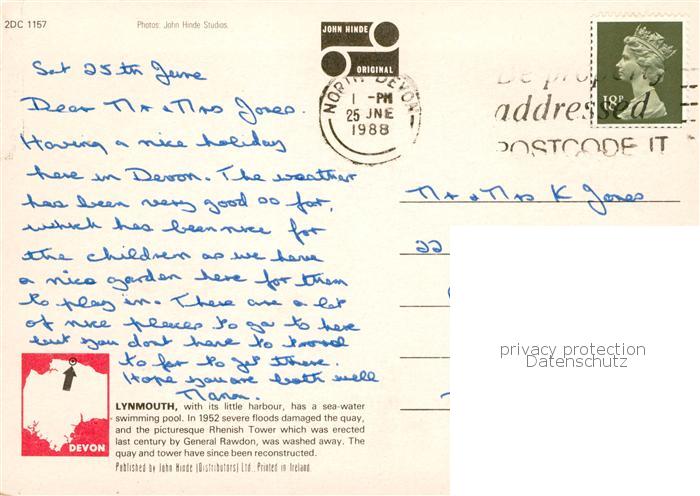 2DC 1157
Photos: John Hinde Studios.
JOHN HINDE
ORIGINAL
NORTH DEVON
1 -PM
25 JNE
1988
Be properly
addressed
POSTCODE IT
18P
Sat 25th June
Dear Mr & Mrs Jones.
Having a nice holiday
here in Devon. The weather
has been very good so far,
which has been nice for
the children as we have
a nice garden here for them
to play in. There are a lot
of nice places to go to here
but you dont have to travel
to far to get there.
Hope you are both well
Mr & Mrs K Jones
22
privacy protection
Datenschutz
DEVON
LYNMOUTH, with its little harbour, has a sea-water
swimming pool. In 1952 severe floods damaged the quay,
and the picturesque Rhenish Tower which was erected
last century by General Rawdon, was washed away. The
quay and tower have since been reconstructed.
Published by John Hinde (Distributors) Ltd., Printed in Ireland.